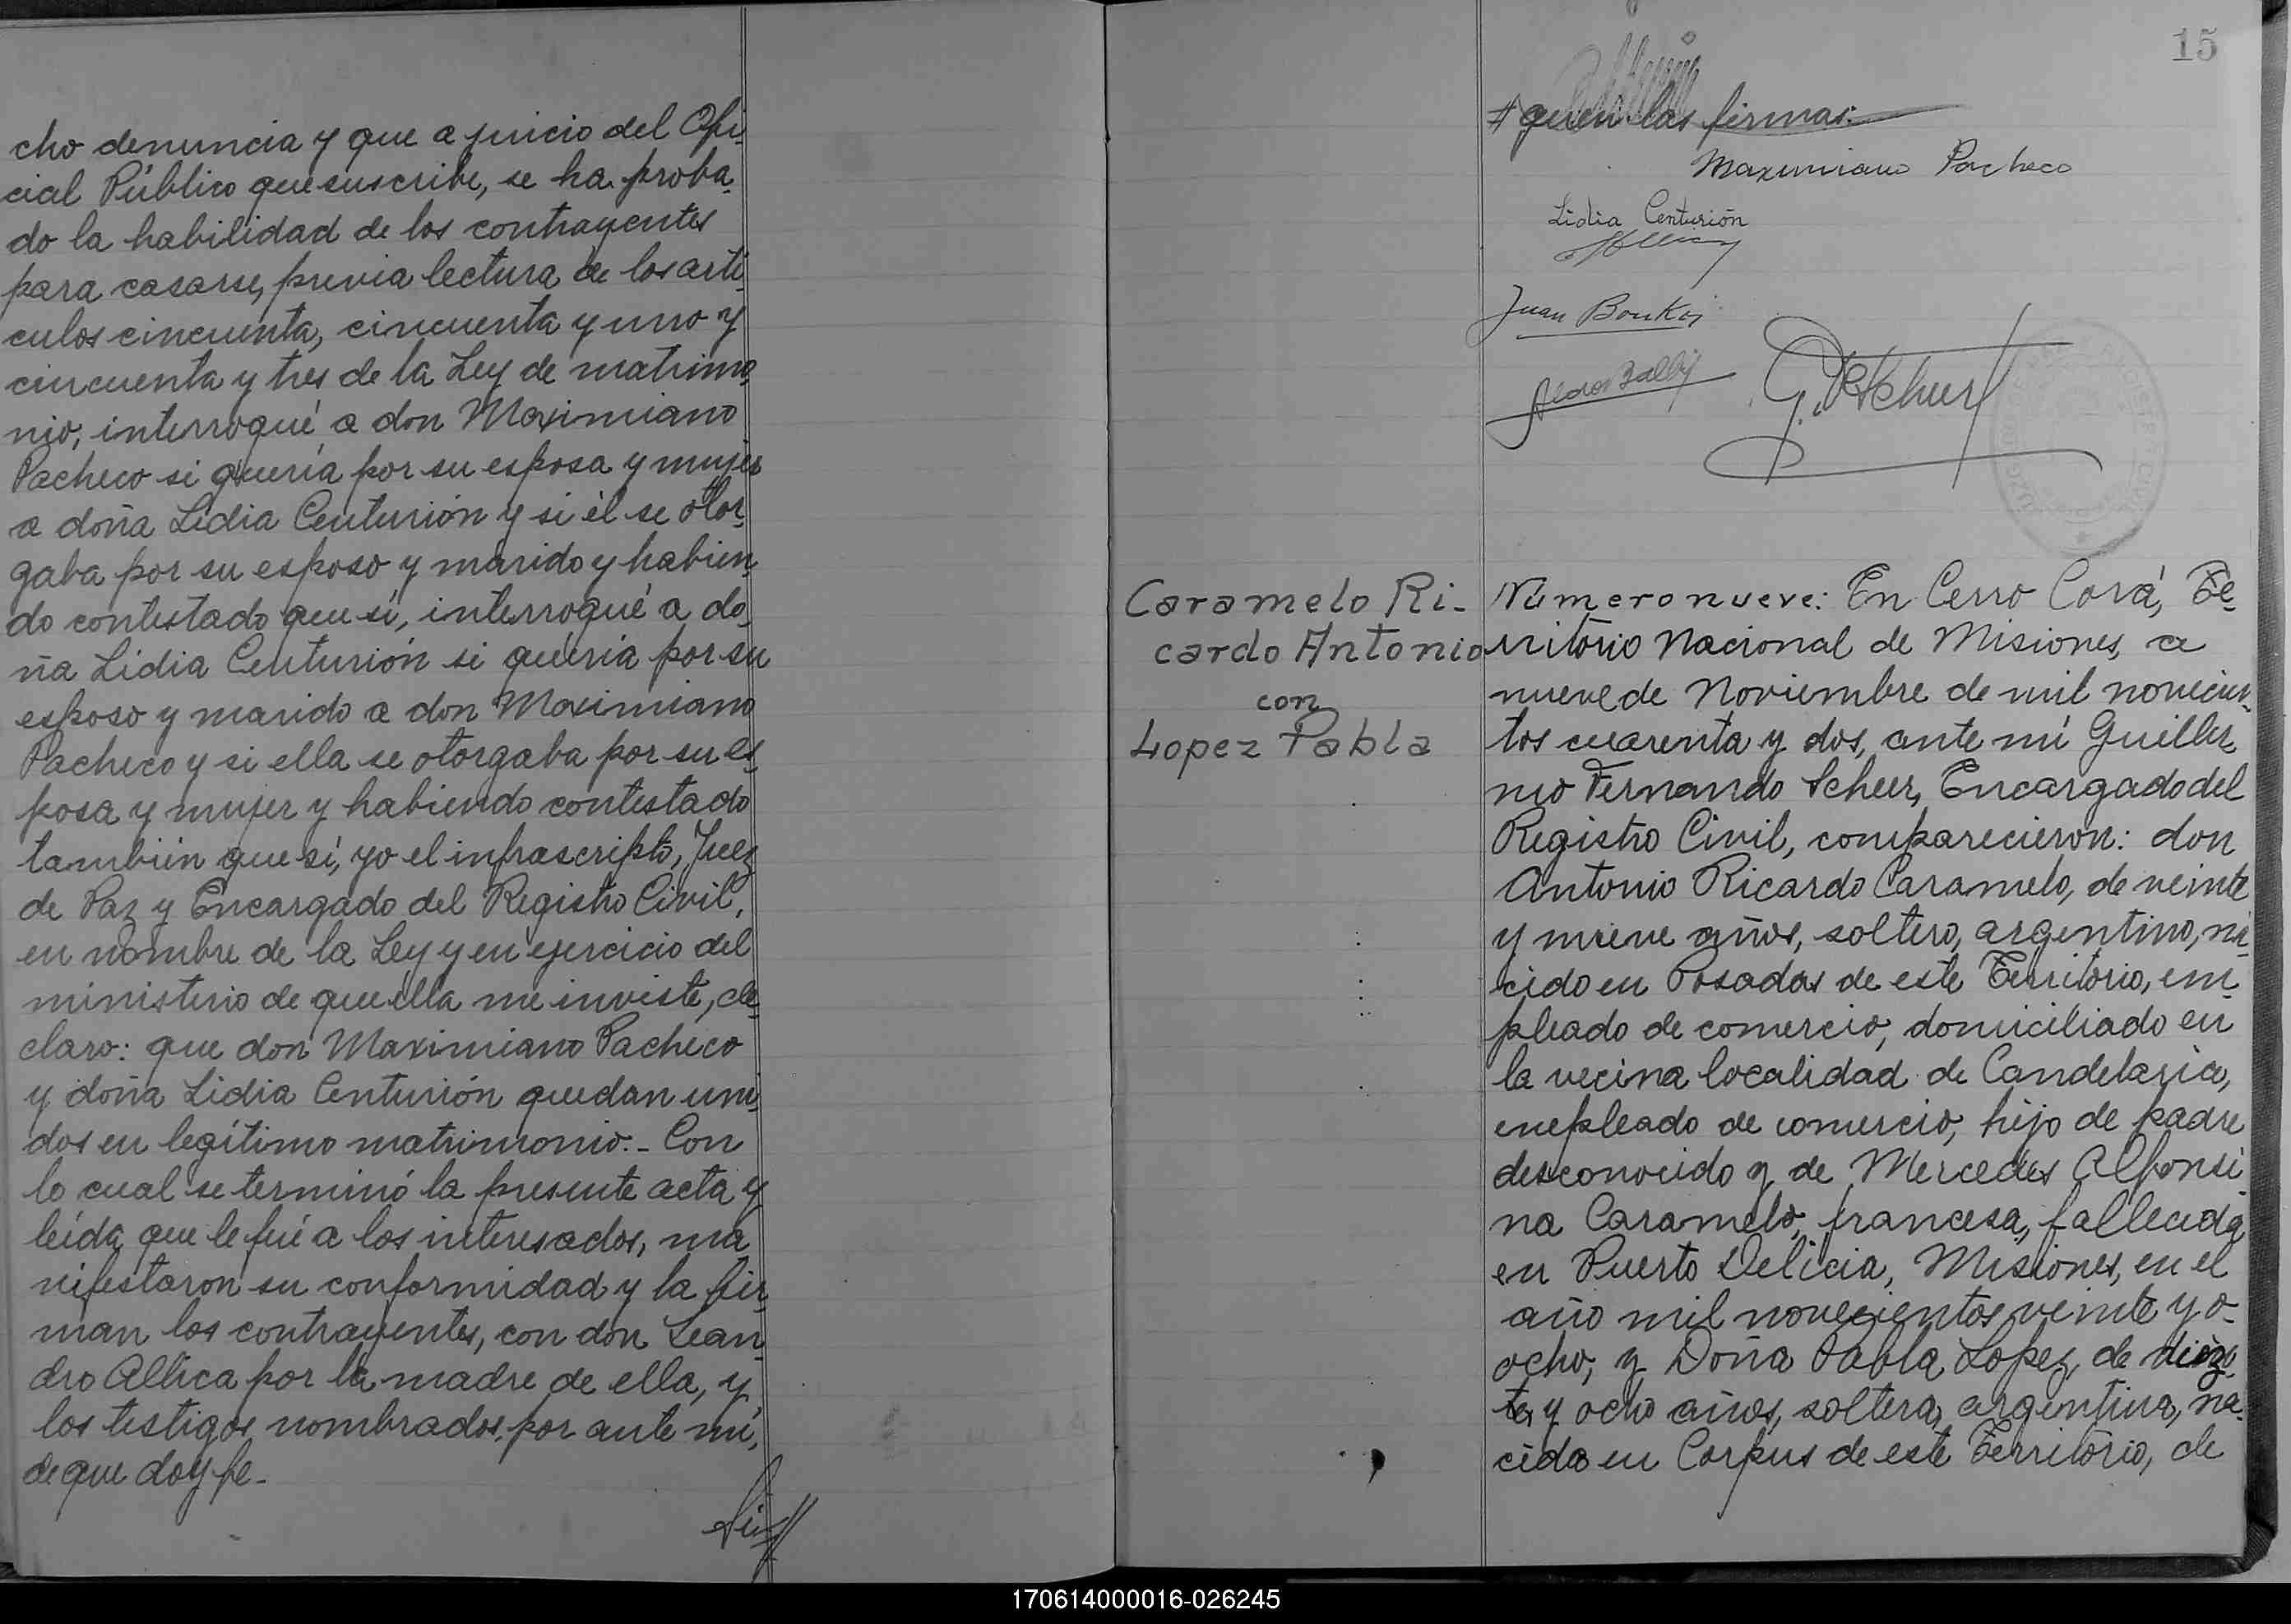 cho denuncia y que a juicio del Ofi-
cial Público que suscribe, se ha proba-
do la habilidad de los contrayentes
para casarse, previa lectura de los artí-
culos cincuenta, cincuenta y uno y
cincuenta y tres de la Ley de matrimo-
nio, interrogué a don Maximiano
Pacheco si quería por su esposa y mujer
a doña Lidia Centurión y si él se otor-
gaba por su esposo y marido y habien-
do contestado que sí, interrogué a do-
ña Lidia Centurión si quería por su
esposo y marido a don Maximiano
Pacheco y si ella se otorgaba por su es-
posa y mujer y habiendo contestado
también que sí, yo el infrascripto, Juez
de Paz y Encargado del Registro Civil,
en nombre de la Ley y en ejercicio del
ministerio de que ella me inviste, de-
claro: que don Maximiano Pacheco
y doña Lidia Centurión quedan uni-
dos en legítimo matrimonio.- Con
lo cual se terminó la presente acta y
leída que le fué a los interesados, ma-
nifestaron su conformidad y la fir-
man los contrayentes, con don Lean-
dro Allica por la madre de ella, y
los testigos nombrados, por ante mí,
de que doy fe.-
Si//
15
//guen las firmas:
Maximiano Pacheco
Lidia Centurión
Juan Bonkos
G. F. Scheer
Caramelo Ri-
cardo Antonio
con
Lopez Pabla
Número nueve: En Cerro Corá, Te-
rritorio Nacional de Misiones, a
nueve de Noviembre de mil novecien-
tos cuarenta y dos, ante mí Guiller-
mo Fernando Scheer, Encargado del
Registro Civil, comparecieron: don
Antonio Ricardo Caramelo, de veinte
y nueve años, soltero, argentino, na-
cido en Posadas de este Territorio, em-
pleado de comercio, domiciliado en
la vecina localidad de Candelaria,
empleado de comercio, hijo de padre
desconocido y de Mercedes Alfonsi-
na Caramelo, francesa, fallecida
en Puerto Delicia, Misiones, en el
año mil novecientos veinte y o-
ocho, y Doña Pabla Lopez, de
y ocho años, soltera, argentina, na-
cida en Corpus de este Territorio, de
170614000016-026245